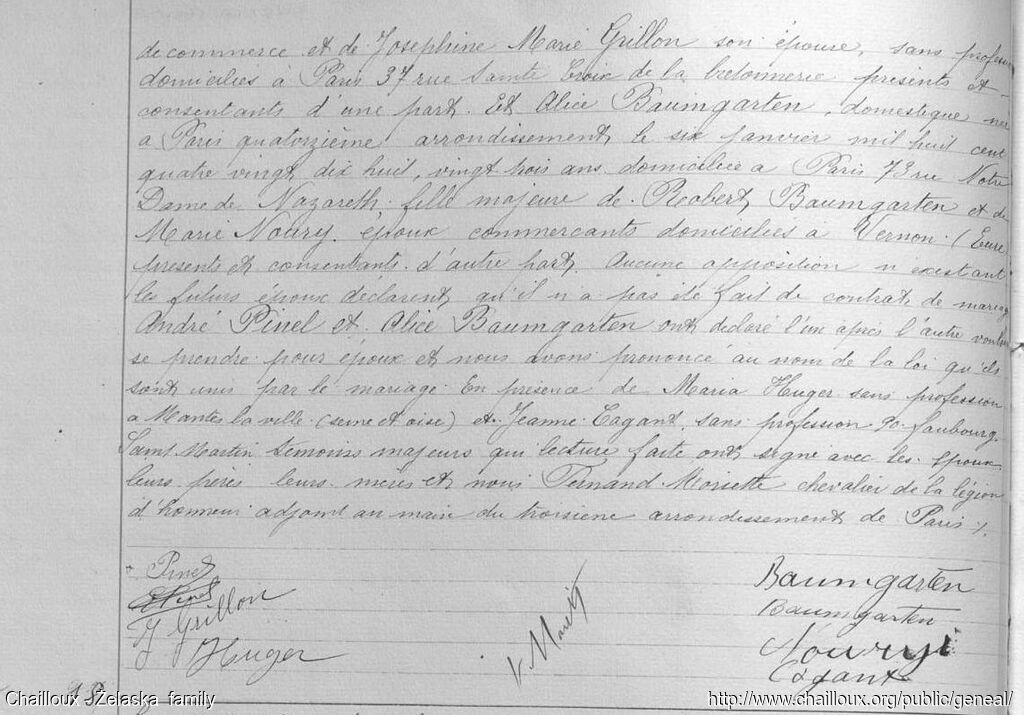 de commerce et de Josephine Marie Grillon son épouse, sans profess
domiciliés à Paris 37 rue Sainte Croix de la bretonnerie présents et
consentants d'une part. Et Alice Baumgarten, domestique née
a Paris quatorzième arrondissement, le six janvier mil huit cent
quatre vingt dix huit, vingt trois ans domiciliée a Paris 73 rue Notre
Dame de Nazareth fille majeure de Robert, Baumgarten et de
Marie Noury. époux commercants domiciliés a Vernon (Eure)
presents et consentants. d'autre part. Aucune opposition n'existant
les futurs époux declarent, qu'il n'a pas été fait de contrat, de mariag
André Pinel et Alice Baumgarten ont déclaré l'un après l'autre vouloir
se prendre pour époux et nous avons prononcé au nom de la loi qu'ils
sont unis par le mariage. En présence de Maria Huger sans profession
a Mantes la ville (seine et oise) et Jeanne Cagant, sans profession 90 faubourg
Saint Martin témoins majeurs qui lecture faite ont signé avec les époux
leurs pères leurs mères et nous Fernand Morsette chevalier de la légion
d'honneur adjoint au maire du troisième arrondissement de Paris /.
Pinel
Baumgarten
Pinel
Baumgarten
J Grillon
Noury
J Huger
Cagant
Chailloux - Zelaska family
http://www.chailloux.org/public/geneal/